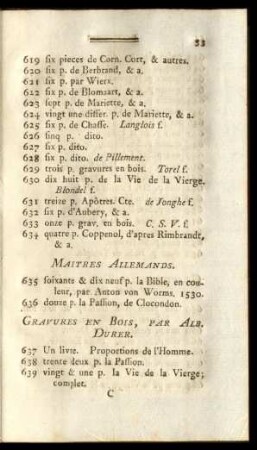 33
619 six pieces de Corn. Cort, & autres.
620 six p. de Berbrand, & a.
621 six p. par Wiers.
622 six p. de Blomaart, & a.
623 sept p. de Mariette, & a.
624 vingt une differ. p. de Mariette, & a.
625 six p. de Chasse. Langlois f.
626 sinq p. dito.
627 six p. dito.
628 six p. dito. de Pillement.
629 trois p. gravures en bois. Torel f.
630 dix huit p. de la Vie de la Vierge.
Blondel f.
631 treize p. Apôtres. Cte. de Jonghe f.
632 six p. d'Aubery, & a.
633 onze p. grav. en bois. C. S. V. f.
634 quatre p. Coppenol, d'apres Rimbrandt,
& a.
MAITRES ALLEMANDS.
635 soixante & dix neuf p. la Bible, en cou-
leur, par Anton von Worms. 1530.
636 douze p. la Passion, de Clocondon.
GRAVURES EN BOIS, PAR ALB.
DURER.
637 Un livre. Proportions de l'Homme.
638 trente deux p. la Passion.
639 vingt & une p. la Vie de la Vierge;
complet.
C